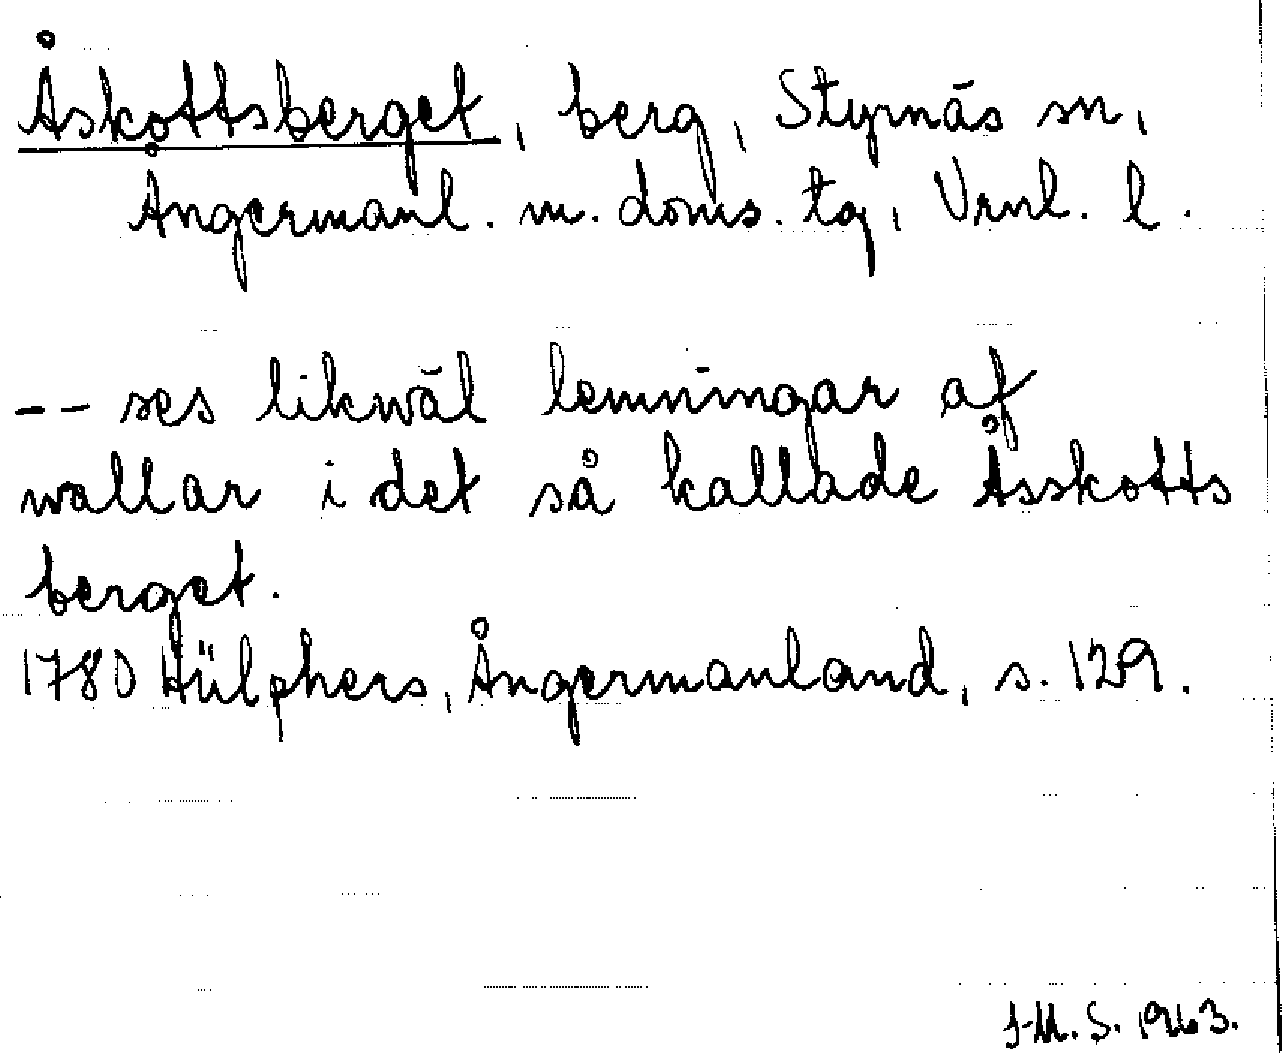 Åskottsberget, berg, Styrnäs sn,
Ångermanl. m. doms. tg, Vrnl. l.
-- ses likwäl lemningar af
wallar i det så kallade Åsskotts
berget.
1780 Hülphers, Ångermanland, s. 129.
J-M. S. 1963.